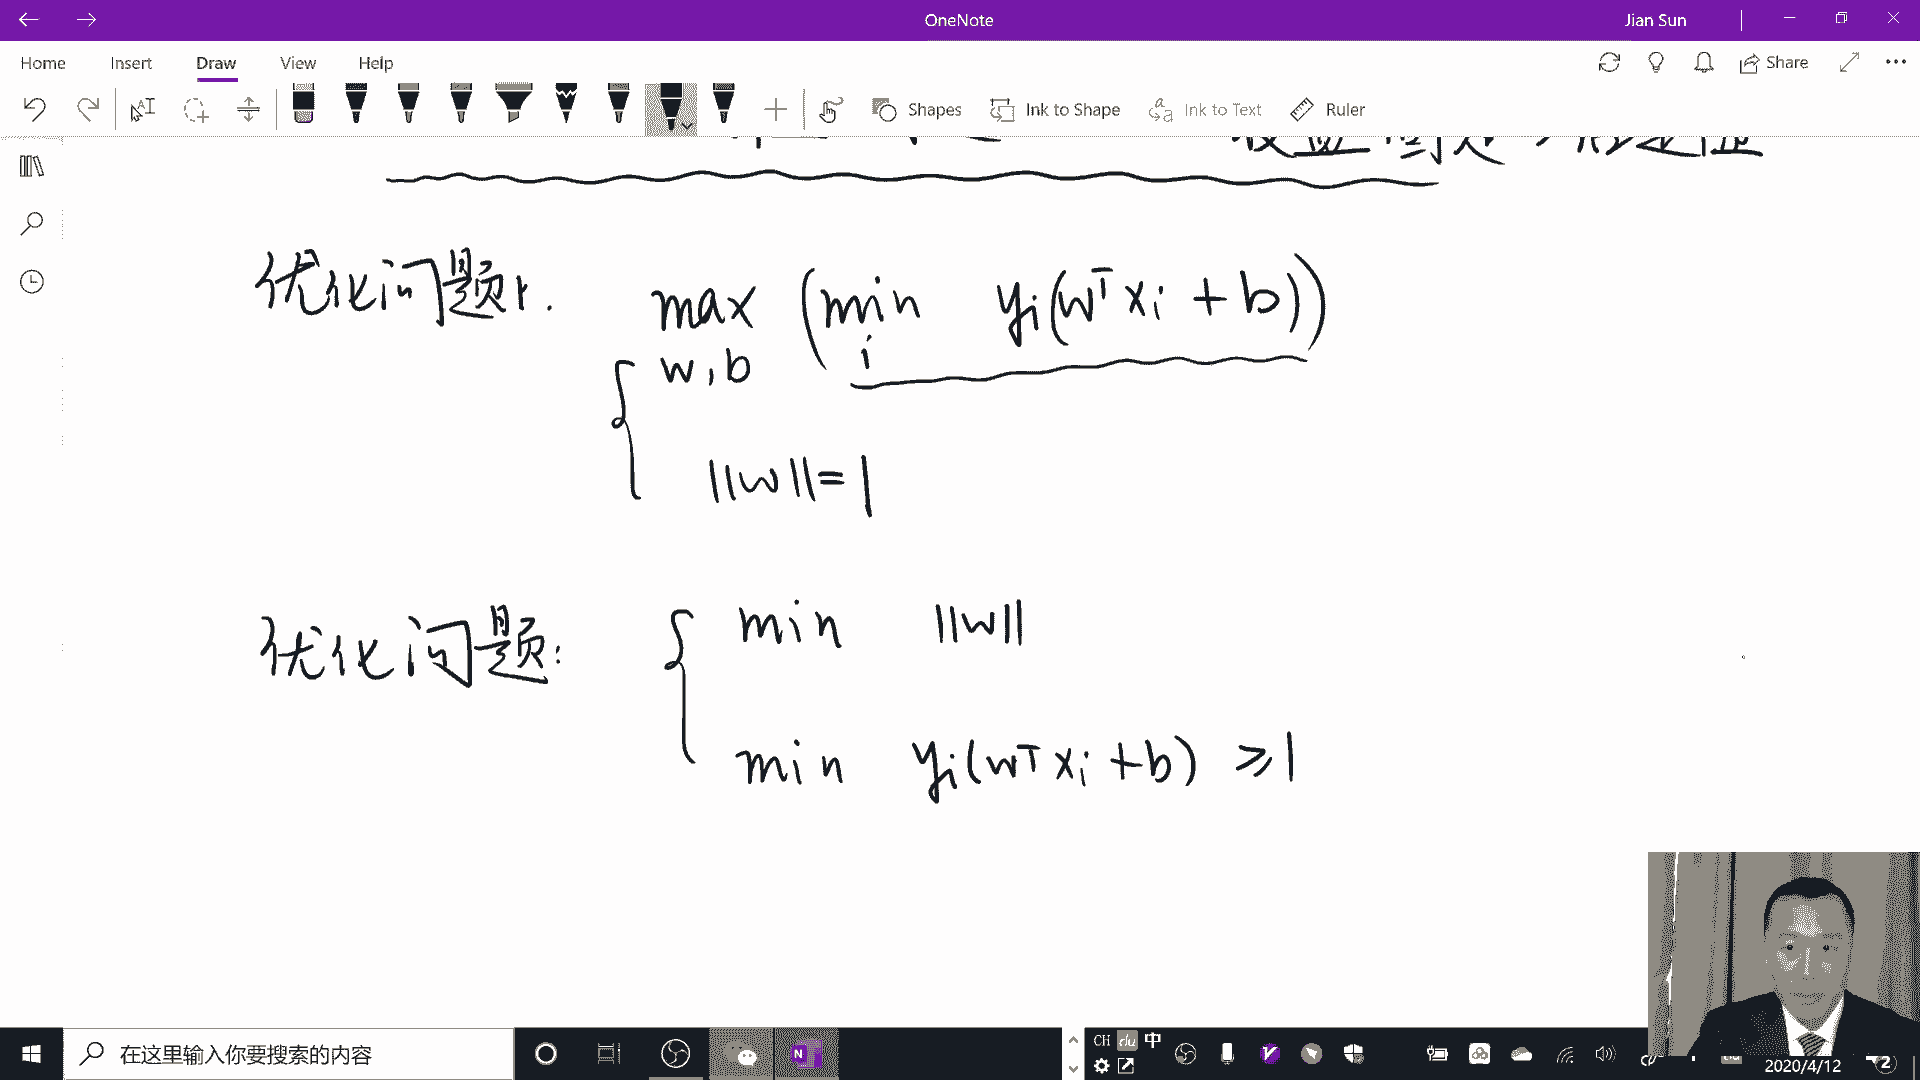 OneNote
Jian Sun
Home Insert Draw View Help
Share
Shapes Ink to Shape Ink to Text Ruler
优化问题1. max (min yi(wᵀxi + b))
w,b i
||w||=1
优化问题: min ||w||
min yi(wᵀxi+b) ≥1
在这里输入你要搜索的内容
CH 中
2020/4/12
2